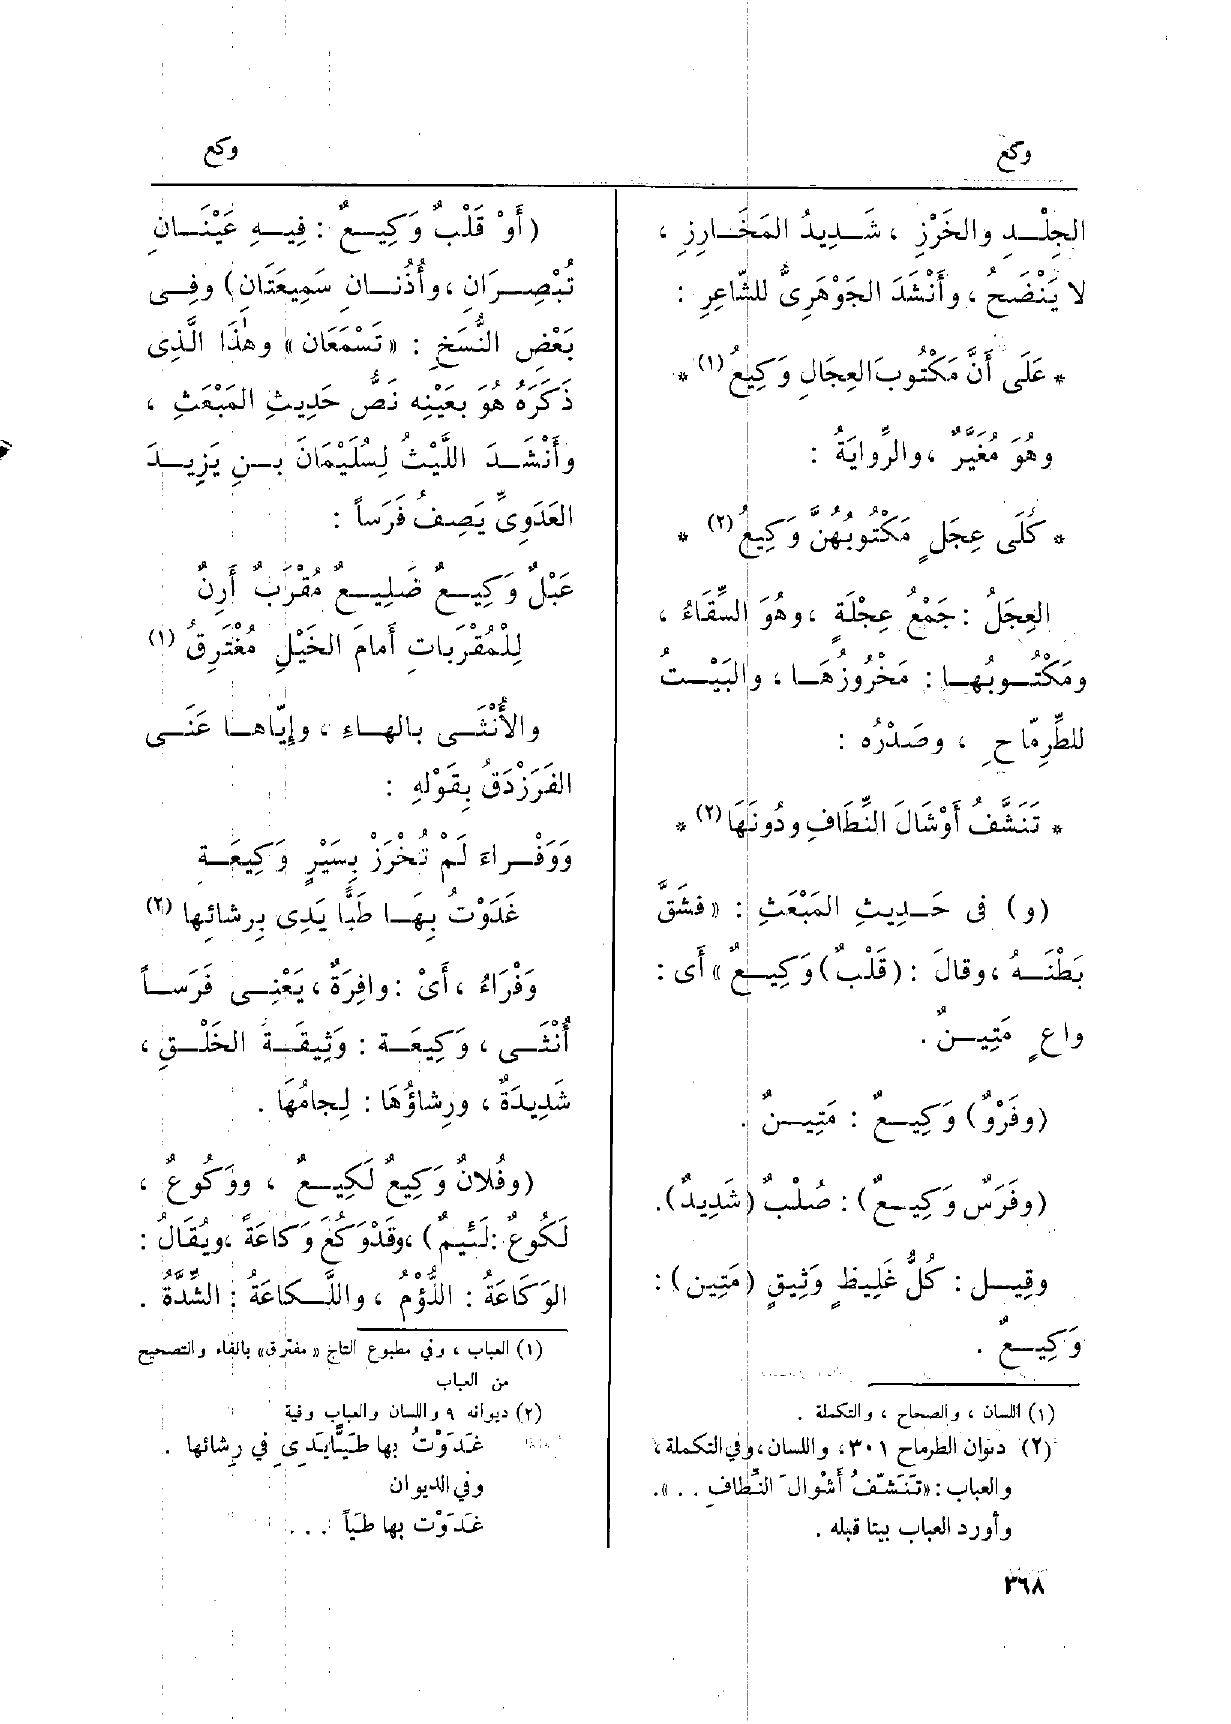 وكع
وكع
الجِلْدِ والخَرْزِ ، شَدِيدُ المَخَارِزِ ،
لا يَنْضَحُ ، وأَنْشَدَ الجَوْهَرِىُّ للشّاعِرِ :
* عَلَى أَنَّ مَكْتُوبَ العِجَالِ وَكِيعُ (١) *
وهُوَ مُغَيَّرٌ ، والرِّوايَةُ :
* كُلَى عِجَلٍ مَكْتُوبُهُنَّ وَكِيعُ (٢) *
العِجَلُ : جَمْعُ عِجْلَةٍ ، وهُوَ السِّقَاءُ ،
ومَكْتُوبُها : مَخْرُوزُهَا ، والبَيْتُ
للطِّرِمّاحِ ، وصَدْرُه :
* تَنَشَّفُ أَوْشَالَ النِّطَافِ ودُونَهَا (٢) *
(و) فى حَدِيثِ المَبْعَثِ : « فشَقَّ
بَطْنَهُ ، وقالَ : (قَلْبٌ) وَكِيعٌ » أى :
واعٍ مَتِينٌ .
(وفَرْوٌ) وَكِيعٌ : مَتِينٌ .
(وفَرَسٌ وَكِيعٌ) : صُلْبٌ (شَدِيدٌ).
وقِيل : كُلُّ غَلِيظٍ وَثِيقٍ (مَتِين) :
وَكِيعٌ .
(١) اللسان ، والصحاح ، والتكملة .
(٢) ديوان الطرماح ٣٠١، واللسان، وفي التكملة ،
والعباب : «تَنَشّفُ أشْوالَ النِّطافِ . . ».
وأورد العباب بيتا قبله .
٣٦٨
(أَوْ قَلْبٌ وَكِيعٌ : فِيهِ عَيْنَانِ
تُبْصِرَانِ ، وأُذُنانِ سَمِيعَتَانِ) وفِى
بَعْضِ النُّسَخِ : «تَسْمَعَان» وهٰذَا الَّذِى
ذَكَرَهُ هُوَ بعَيْنِه نَصُّ حَدِيثِ المَبْعَثِ ،
وأَنْشَدَ اللَّيْثُ لِسُلَيْمَانَ بنِ يَزِيدَ
العَدَوِىِّ يَصِفُ فَرَساً :
عَبْلٌ وَكِيعٌ ضَلِيعٌ مُقْرَبٌ أَرِنٌ
لِلْمُقْرَباتِ أَمامَ الخَيْلِ مُغْتَرِقُ (١)
والأُنْثَى بالهاءِ ، وإِيّاها عَنَى
الفَرَزْدَقُ بِقَوْلهِ :
ووَفْراءَ لَمْ تُخْرَزْ بِسَيْرٍ وَكِيعَةٍ
غَدَوْتُ بِهَا طَبًّا يَدِى بِرِشائِها (٢)
وَفْرَاءُ ، أَىْ : وافِرَةٌ ، يَعْنِى فَرَساً
أُنْثَى ، وَكِيعَة : وَثِيقَةُ الخَلْقِ ،
شَدِيدَةٌ ، ورِشاؤُهَا : لِجامُهَا .
(وفُلانٌ وَكِيعٌ لَكِيعٌ ، ووَكُوعٌ ،
لَكُوعٌ : لَئِيمٌ) ، وقَدْ وَكُعَ وَكاعَةً ، ويُقَالُ :
الوَكَاعَةُ : اللُّؤْمُ ، واللَّكاعَةُ : الشِّدَّةُ .
(١) العباب ، وفي مطبوع التاج « مفترق» بالفاء والتصحيح
من العباب
(٢) ديوانه ٩ واللسان والعباب وفية
غَدَوْتُ بها طَيًّا يَدي في رِشائها .
وفي الديوان
غَدَوْت بها طَيّاً . . .